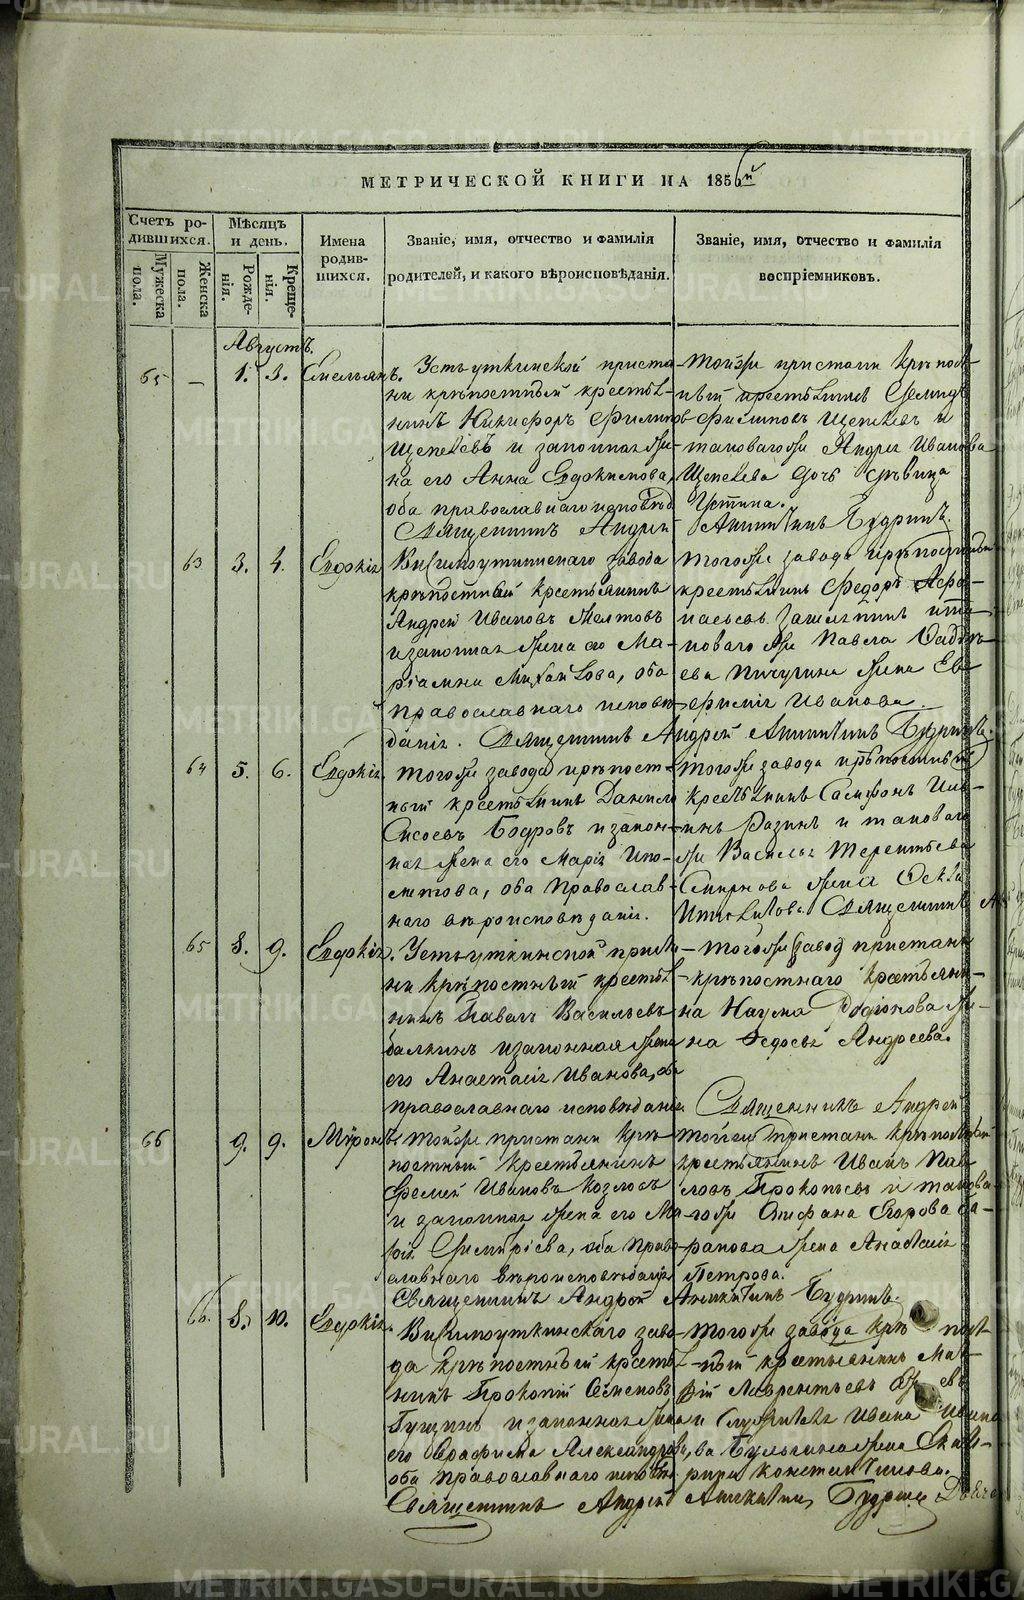 МЕТРИЧЕСКОЙ КНИГИ НА 1856й
Счетъ ро-
дившихся.
Мужеска
пола.
Женска
пола.
Мѣсяцъ
и день.
Рожде-
нія.
Креще-
нія.
Имена
родив-
шихся.
Званіе, имя, отчество и фамилія
родителей, и какого вѣроисповѣданія.
Званіе, имя, отчество и фамилія
воспріемниковъ.
Августъ.
65 — 1. 3. Емельянъ.
Устьуткинской приста
ни крѣпостный крестья-
нинъ Никифоръ Филипов
Щепелевъ и законная же-
на его Анна Евдокимова,
оба православнаго исповѣд
Священникъ Андрей
Тойже пристани крѣпост
ный крестьянинъ
Филиповъ Щепелевъ и
таковагоже Андрея Иванова
Щепелева дочь дѣвица
Устина.
Аникитинъ Будринъ.
63 3. 4. Евдокія
Висимоуткинскаго завода
крѣпостный крестьянинъ
Андрей Ивановъ
и законная жена его Ма-
ріамна Михайлова, оба
православнаго исповѣ
данія. Священникъ Андрей Аникитинъ Будринъ.
Тогоже завода крѣпостный
крестьянинъ Федоръ Афо-
насьевъ и та-
коваго же Павла
ева Пичугина жена Ев-
фимія Иванова.
64 5. 6. Евдокія.
Тогоже завода крѣпост-
ный крестьянинъ Данило
Сысоевъ Бодровъ и закон-
ная жена его Марія Ипо-
литова, оба Православ-
наго вѣроисповѣданія.
Тогоже завода крѣпостный
крестьянинъ Самсонъ
Разинъ и таковаго
же Василья Терентьева
Смирнова жена
Священникъ
65 8. 9. Евдокія.
Устьуткинской приста
ни крѣпостный крестья
нинъ Павелъ Васильевъ
и законная жена
его Анастасія Иванова, оба
православнаго исповѣданія
Тогоже завод пристани
крѣпостнаго крестьяни-
на Наума Родіонова же-
на Федосья Андреева.
Священникъ Андрей
66 9. 9. Миронъ
Тойже пристани крѣ
постный крестьянинъ
Ивановъ Козловъ
и законная жена его Ма-
рія оба право
славнаго вѣроисповѣданія
Священникъ Андрей Аникитинъ Будринъ.
Тойже Пристани крѣпостный
крестьянинъ Иванъ Пав
ловъ Прокопьевъ и таков-
агоже Епифана Егорова ба-
ранова жена Анастасія
Петрова.
66. 8. 10. Евдокія.
Висимоуткинскаго заво
да крѣпостный крестья
нинъ Прокопій Семеновъ
Гущинъ и законная жена
его Серафима Александрова,
оба православнаго исповѣ
Тогоже завода крѣ пост-
ный крестьянинъ Мат-
вій Лаврентьевъ
и Ивана Ивано
ва жена Екате-
рина Константинова.
Священникъ Андрей Аникитинъ Будринъ
METRIKI.GASO-URAL.RU